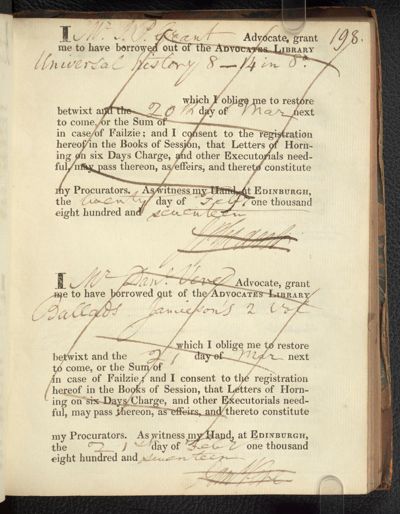 198.
I Mr. J. P. Grant Advocate, grant
me to have borrowed out of the ADVOCATES LIBRARY
Universal History 8 – 14 in 8o.
which I oblige me to restore
betwixt and the 20th day of Mar next
to come, or the Sum of
in case of Failzie; and I consent to the registration
hereof in the Books of Session, that Letters of Horn-
ing on six Days Charge, and other Executorials need-
ful, may pass thereon, as effeirs, and thereto constitute
my Procurators. As witness my Hand, at EDINBURGH,
the twenty day of Feby. one thousand
eight hundred and seventeen
I Mr. Danl. Vere Advocate, grant
me to have borrowed out of the ADVOCATES LIBRARY
Ballads Jamieson's 2 vol
which I oblige me to restore
betwixt and the 21 day of Mar next
to come, or the Sum of
in case of Failzie; and I consent to the registration
hereof in the Books of Session, that Letters of Horn-
ing on six Days Charge, and other Executorials need-
ful, may pass thereon, as effeirs, and thereto constitute
my Procurators. As witness my Hand, at EDINBURGH,
the 21st day of Feby one thousand
eight hundred and seventeen